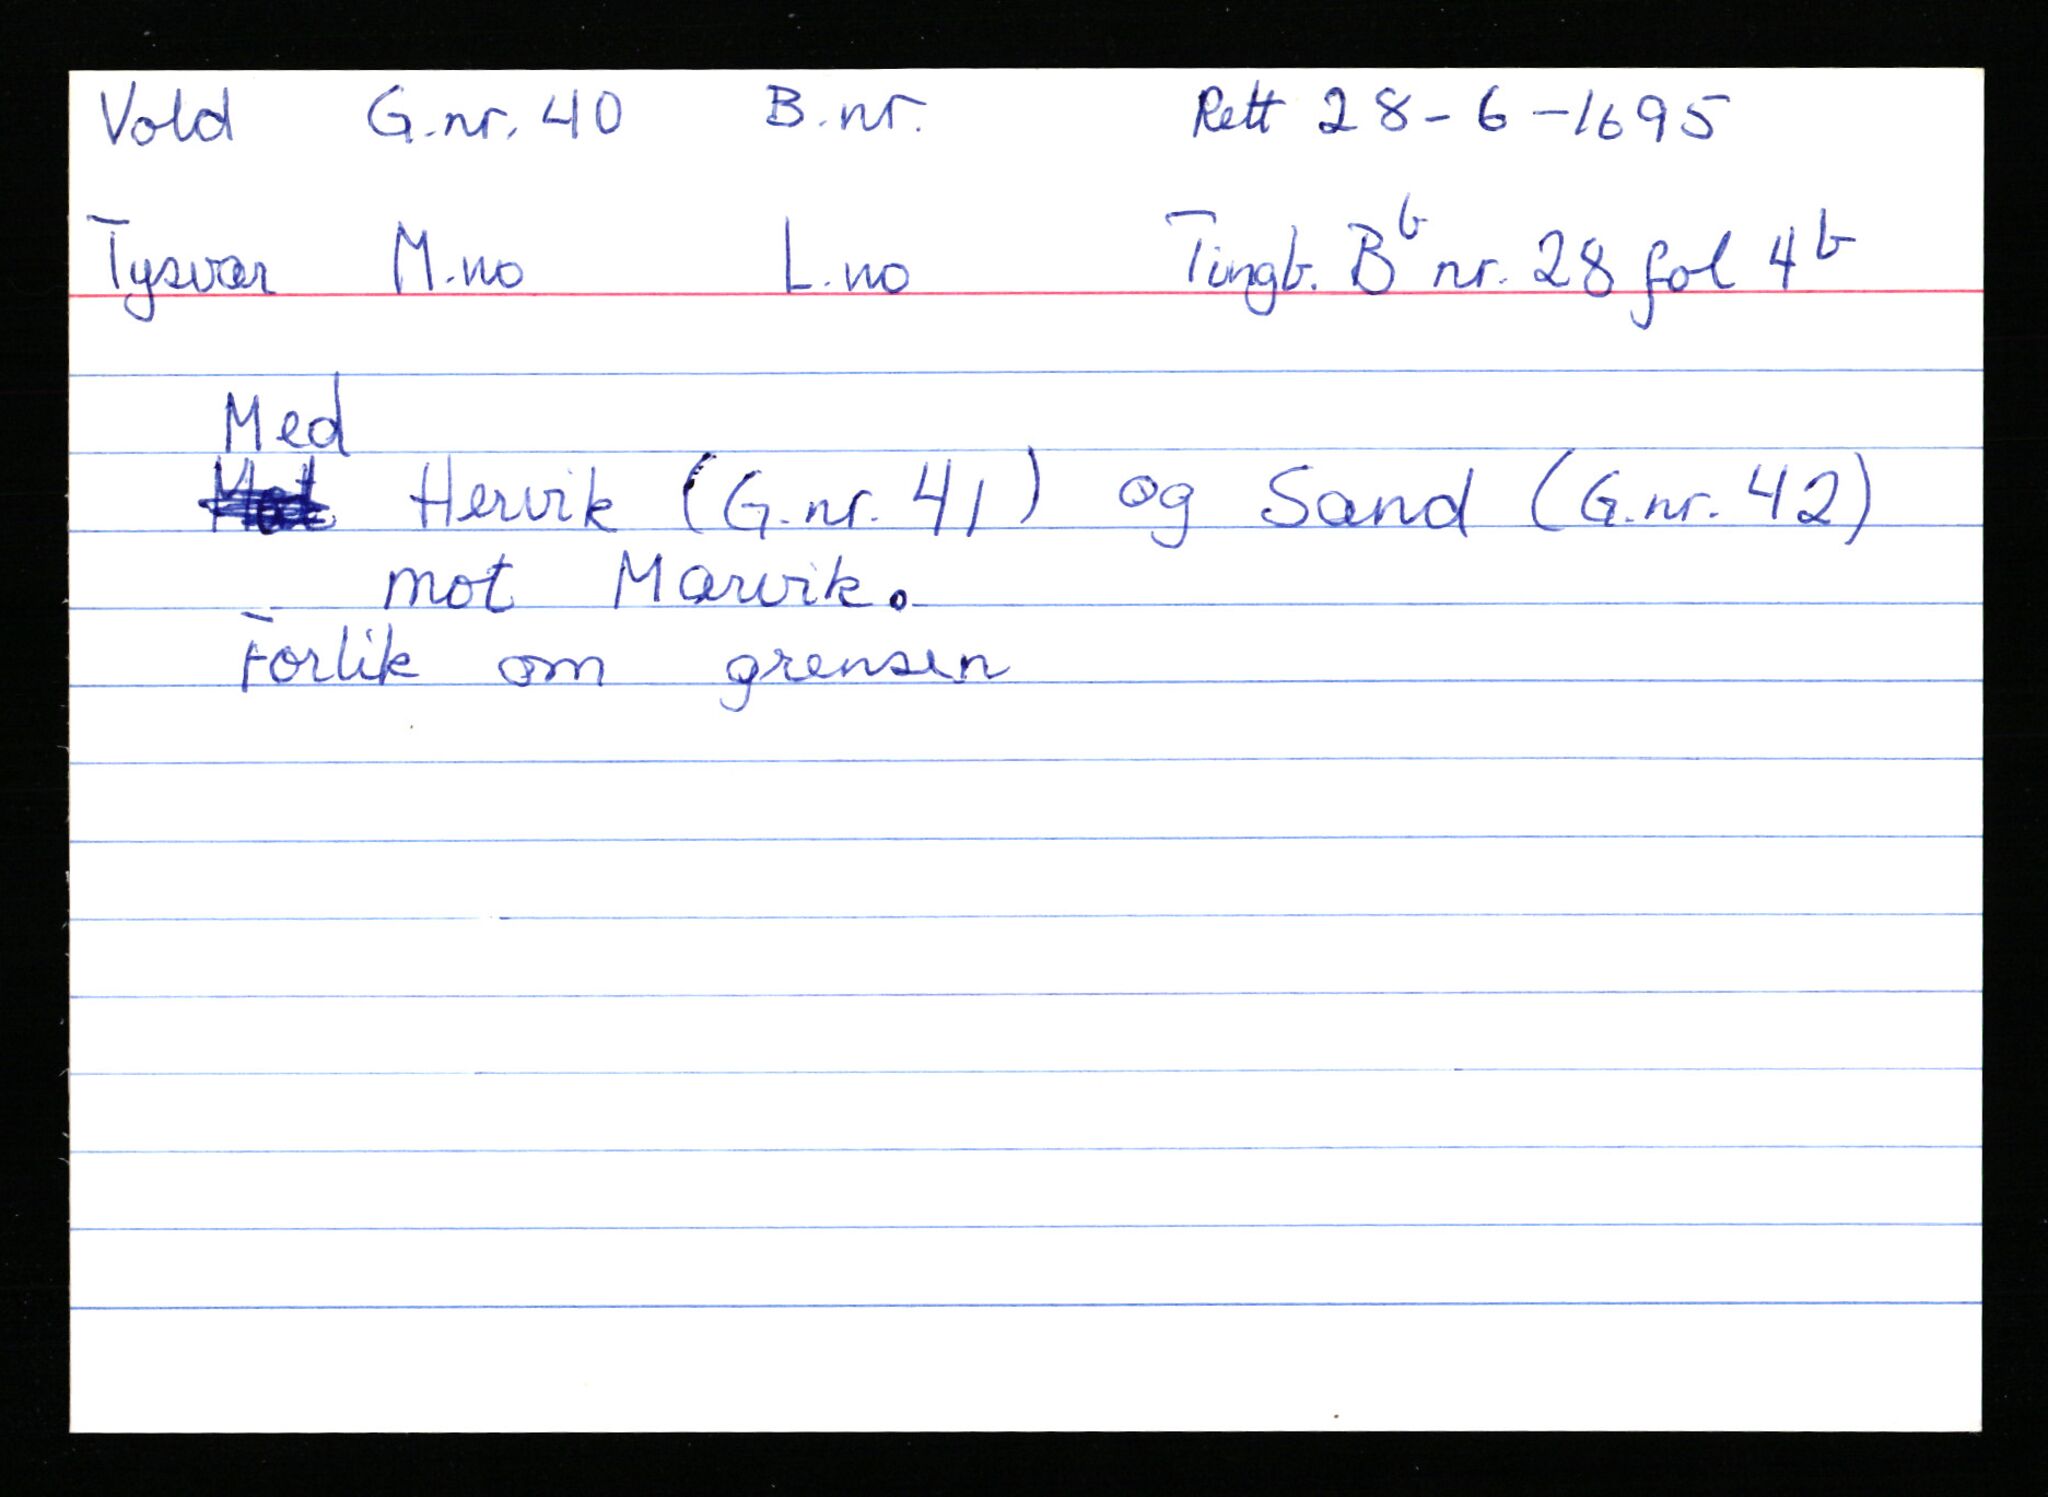 Vold G.nr. 40 B.nr. Rett 28-6-1695
Tysvær M.no L.no Tingb. Bᵇ nr. 28 fol 4ᵇ
Med
Hervik (G.nr. 41) og Sand (G.nr. 42)
mot Marvik.
Forlik om grensen